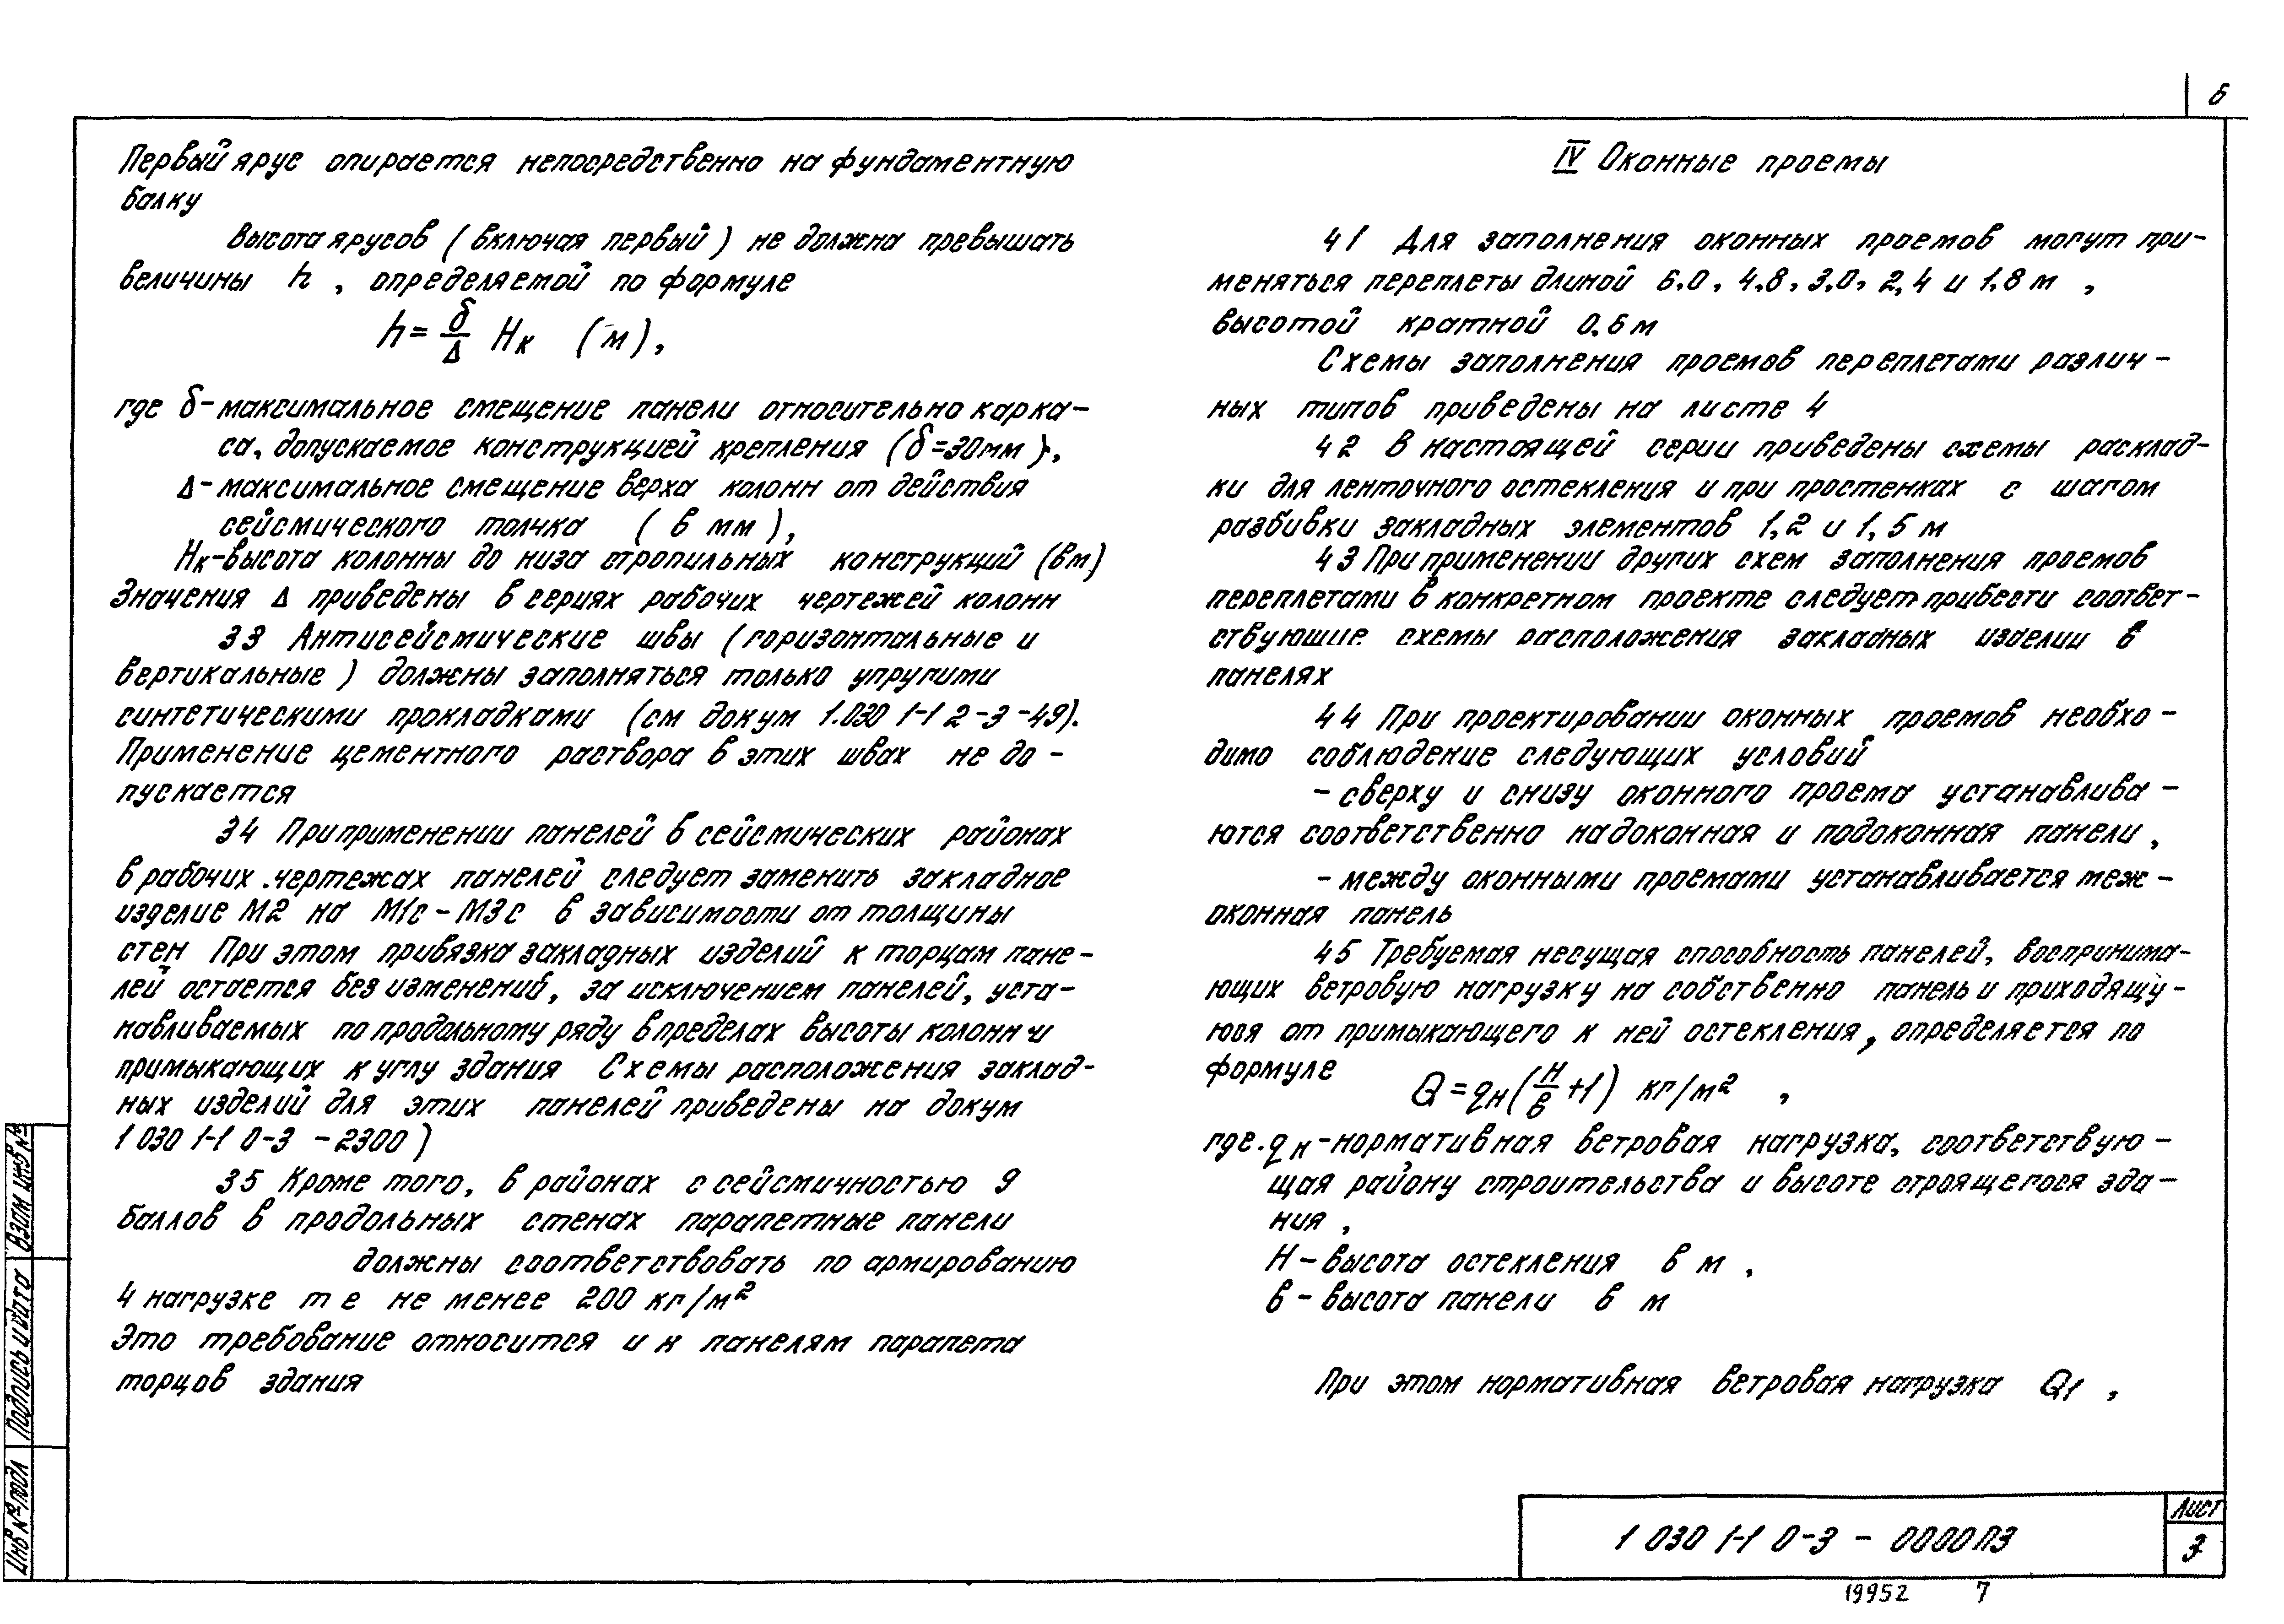 6
Первый ярус опирается непосредственно на фундаментную
балку
Высота ярусов (включая первый) не должна превышать
величины h, определяемой по формуле
h = δ/Δ Hк (м),
где δ-максимальное смещение панели относительно карка-
са, допускаемое конструкцией крепления (δ=30мм),
Δ-максимальное смещение верха колонн от действия
сейсмического толчка (в мм),
Hк-высота колонны до низа стропильных конструкций (вм)
Значения Δ приведены в сериях рабочих чертежей колонн
33 Антисейсмические швы (горизонтальные и
вертикальные) должны заполняться только упругими
синтетическими прокладками (см докум 1.030 1-1 2-3-49).
Применение цементного раствора в этих швах не до-
пускается
34 При применении панелей в сейсмических районах
в рабочих чертежах панелей следует заменить закладное
изделие М2 на М1с-М3с в зависимости от толщины
стен При этом привязка закладных изделий к торцам пане-
лей остается без изменений, за исключением панелей, уста-
навливаемых по продольному ряду в пределах высоты колонн и
примыкающих к углу здания Схемы расположения заклад-
ных изделий для этих панелей приведены на докум
1 030 1-1 0-3 -2300)
35 Кроме того, в районах с сейсмичностью 9
баллов в продольных стенах парапетные панели
должны соответствовать по армированию
4 нагрузке т е не менее 200 кг/м²
Это требование относится и к панелям парапета
торцов здания
IV Оконные проемы
41 Для заполнения оконных проемов могут при-
меняться переплеты длиной 6.0, 4,8, 3,0, 2,4 и 1,8 м,
высотой кратной 0,6 м
Схемы заполнения проемов переплетами различ-
ных типов приведены на листе 4
42 В настоящей серии приведены схемы расклад-
ки для ленточного остекления и при простенках с шагом
разбивки закладных элементов 1,2 и 1,5 м
43 При применении других схем заполнения проемов
переплетами в конкретном проекте следует привести соответ-
ствующие схемы расположения закладных изделии в
панелях
44 При проектировании оконных проемов необхо-
димо соблюдение следующих условий
- сверху и снизу оконного проема устанавлива-
ются соответственно надоконная и подоконная панели,
- между оконными проемами устанавливается меж-
оконная панель
45 Требуемая несущая способность панелей, воспринима-
ющих ветровую нагрузку на собственно панель и приходящу-
юся от примыкающего к ней остекления, определяется по
формуле
Q = qн (H/в + 1) кг/м²,
где qн-нормативная ветровая нагрузка, соответствую-
щая району строительства и высоте строящегося зда-
ния,
H-высота остекления в м,
в-высота панели в м
При этом нормативная ветровая нагрузка Q1,
Инв № подл
Подпись и дата
Взам инв №
1 030 1-1 0-3 - 0000ПЗ
Лист
3
19952 7